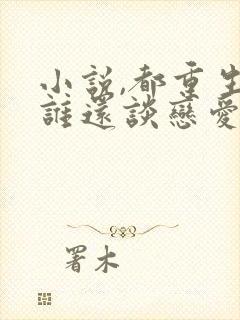 小説,都重生
誰還談戀愛
署木